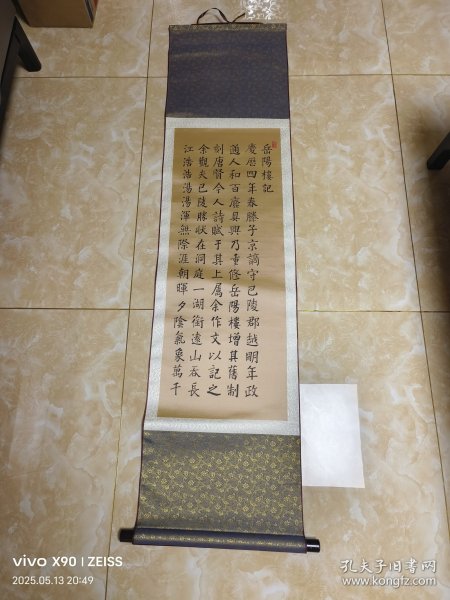 岳陽樓記
慶曆四年春滕子京謫守巴陵郡越明年政
通人和百廢具興乃重修岳陽樓增其舊制
刻唐賢今人詩賦于其上屬余作文以記之
余觀夫巴陵勝狀在洞庭一湖銜遠山吞長
江浩浩湯湯渾無際涯朝暉夕陰氣象萬千
vivo X90 | ZEISS
2025.05.13 20:49
孔夫子旧书网
www.kongfz.com